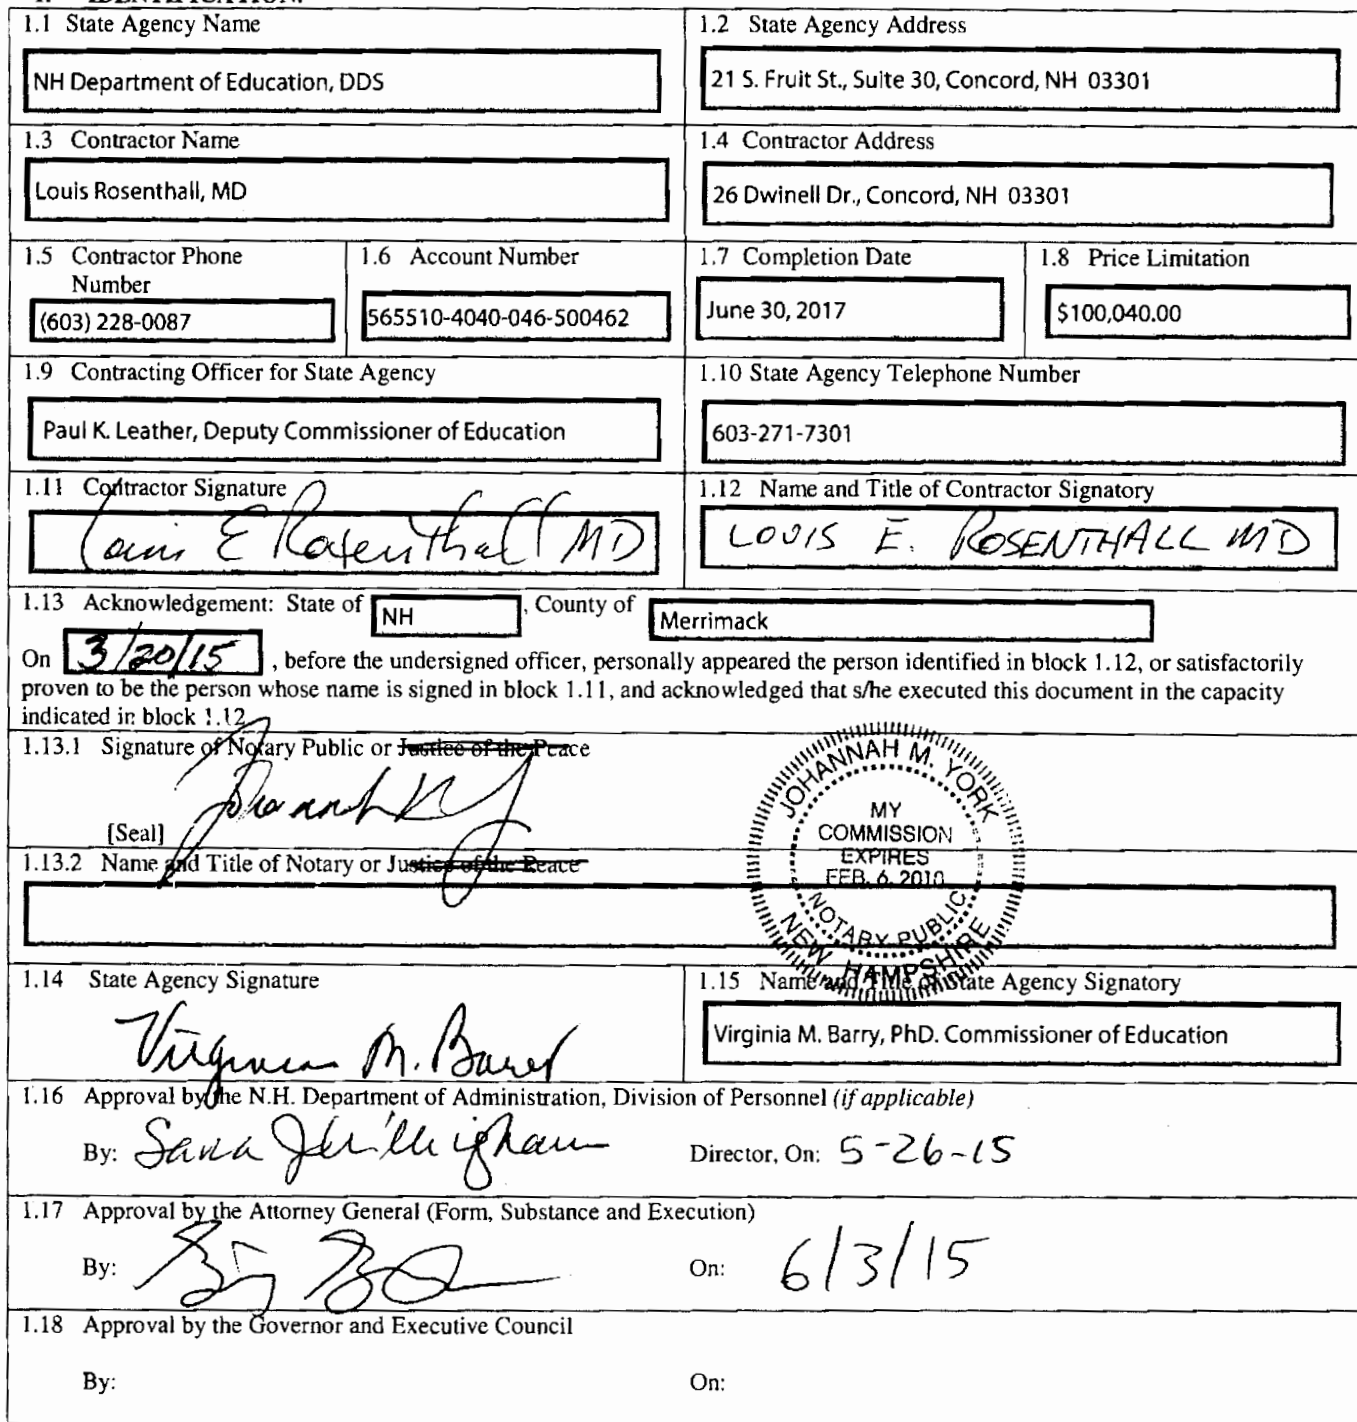 1.1 State Agency Name
NH Department of Education, DDS
1.2 State Agency Address
21 S. Fruit St., Suite 30, Concord, NH 03301
1.3 Contractor Name
Louis Rosenthall, MD
1.4 Contractor Address
26 Dwinell Dr., Concord, NH 03301
1.5 Contractor Phone
Number
(603) 228-0087
1.6 Account Number
565510-4040-046-500462
1.7 Completion Date
June 30, 2017
1.8 Price Limitation
$100,040.00
1.9 Contracting Officer for State Agency
Paul K. Leather, Deputy Commissioner of Education
1.10 State Agency Telephone Number
603-271-7301
1.11 Contractor Signature
Louis E Rosenthall MD
1.12 Name and Title of Contractor Signatory
LOUIS E. ROSENTHALL MD
1.13 Acknowledgement: State of NH, County of Merrimack
On 3/20/15, before the undersigned officer, personally appeared the person identified in block 1.12, or satisfactorily
proven to be the person whose name is signed in block 1.11, and acknowledged that s/he executed this document in the capacity
indicated in block 1.12
1.13.1 Signature of Notary Public or Justice of the Peace
[Seal]
JOHANNAH M. YORK
MY
COMMISSION
EXPIRES
FEB. 6, 2010
NOTARY PUBLIC
NEW HAMPSHIRE
1.13.2 Name and Title of Notary or Justice of the Peace
1.14 State Agency Signature
Virginia M. Barry
1.15 Name and Title of State Agency Signatory
Virginia M. Barry, PhD. Commissioner of Education
1.16 Approval by the N.H. Department of Administration, Division of Personnel (if applicable)
By: Director, On: 5-26-15
1.17 Approval by the Attorney General (Form, Substance and Execution)
By: On: 6/3/15
1.18 Approval by the Governor and Executive Council
By: On: